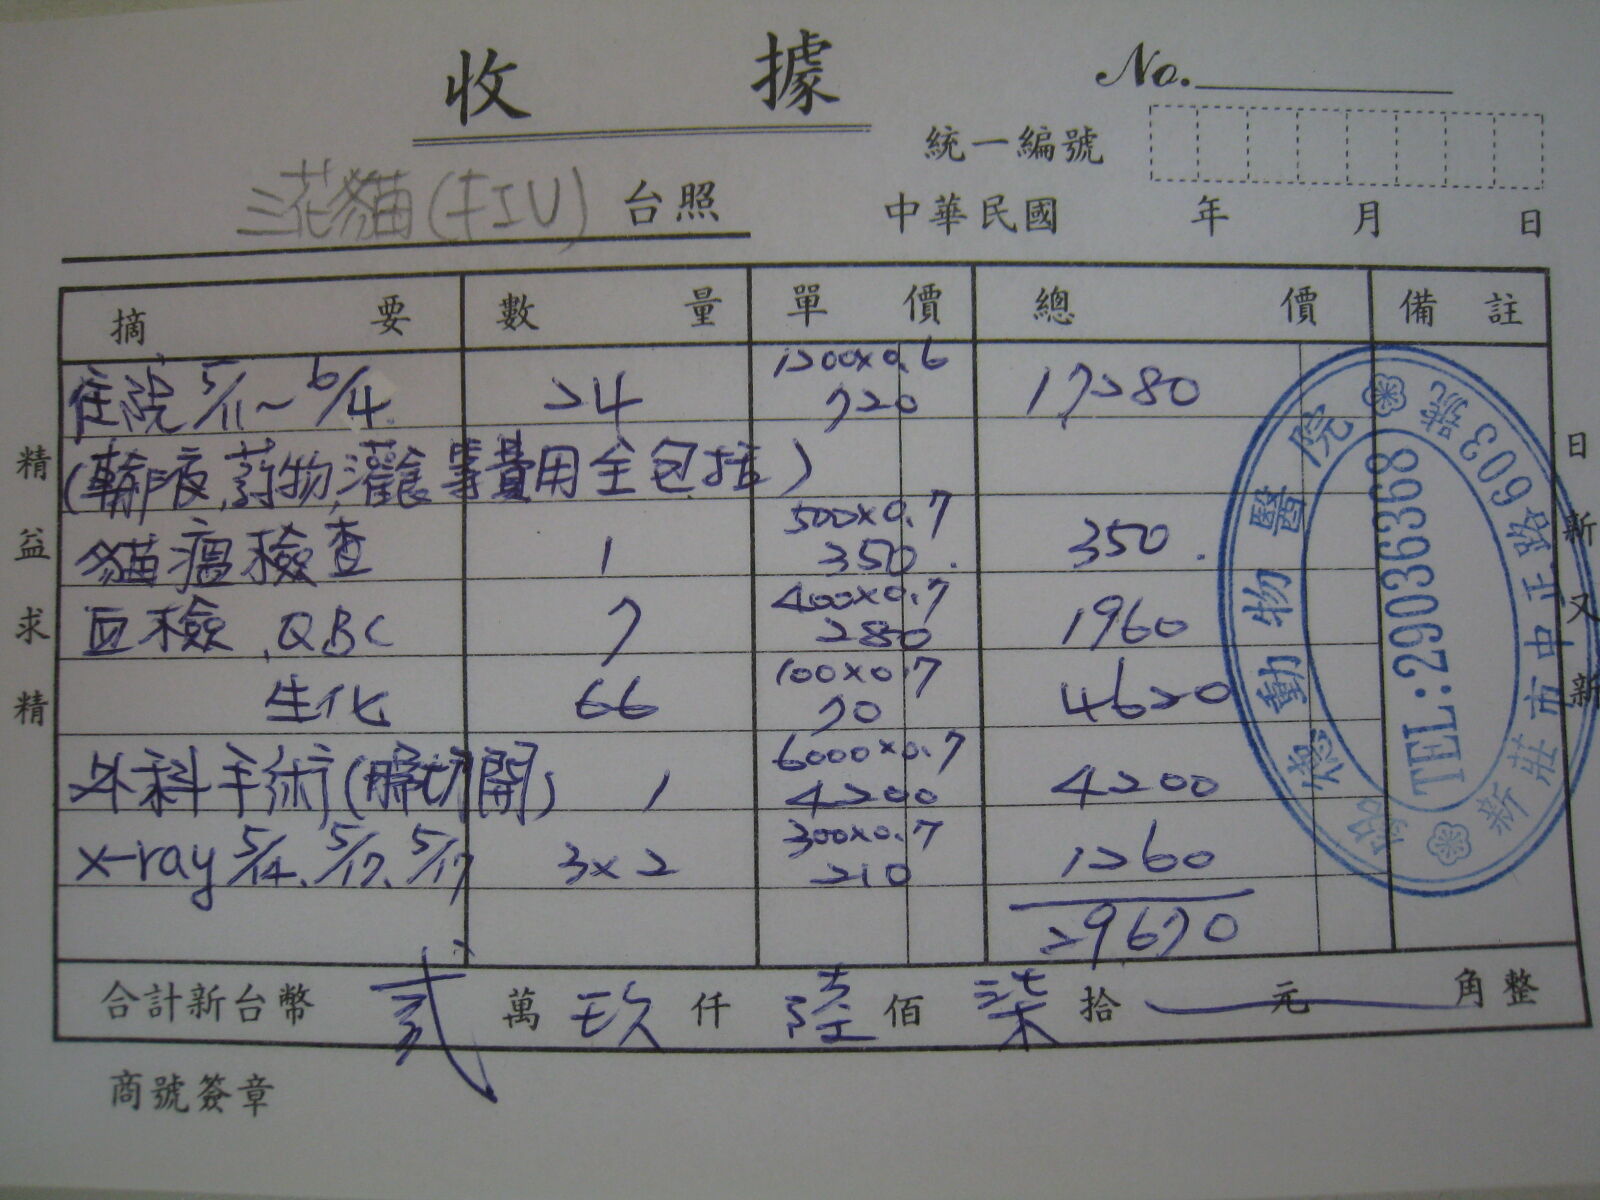 收據
No.
統一編號
三花貓(FIV) 台照
中華民國 年 月 日
摘要 數量 單價 總價 備註
1200x0.6
住院 5/11~6/4 24 720 17280
(輸液,药物,灌食等費用全包括)
500x0.7
貓瘟檢查 1 350. 350.
400x0.7
血檢、QBC 7 280 1960
100x0.7
生化 66 70 4620
6000x0.7
外科手術(腳切開) 1 4200 4200
300x0.7
x-ray 5/14、5/17、5/17 3x2 210 1260
29670
合計新台幣 貳 萬 玖 仟 陸 佰 柒 拾 元 角整
商號簽章
精益求精
日新又新
動物醫院
TEL:29036368
新莊市中正路603號